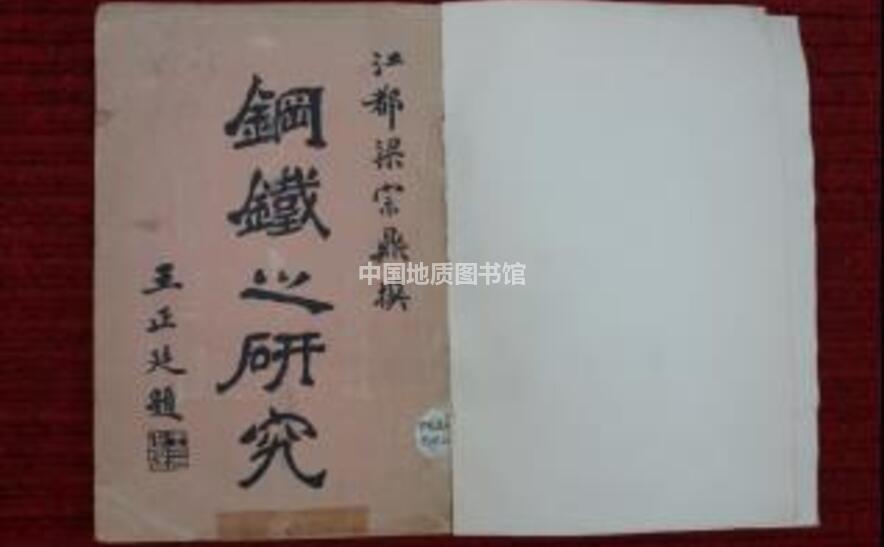 江都梁宗鼎撰
鋼鐵之研究
王正廷題
中国地质图书馆